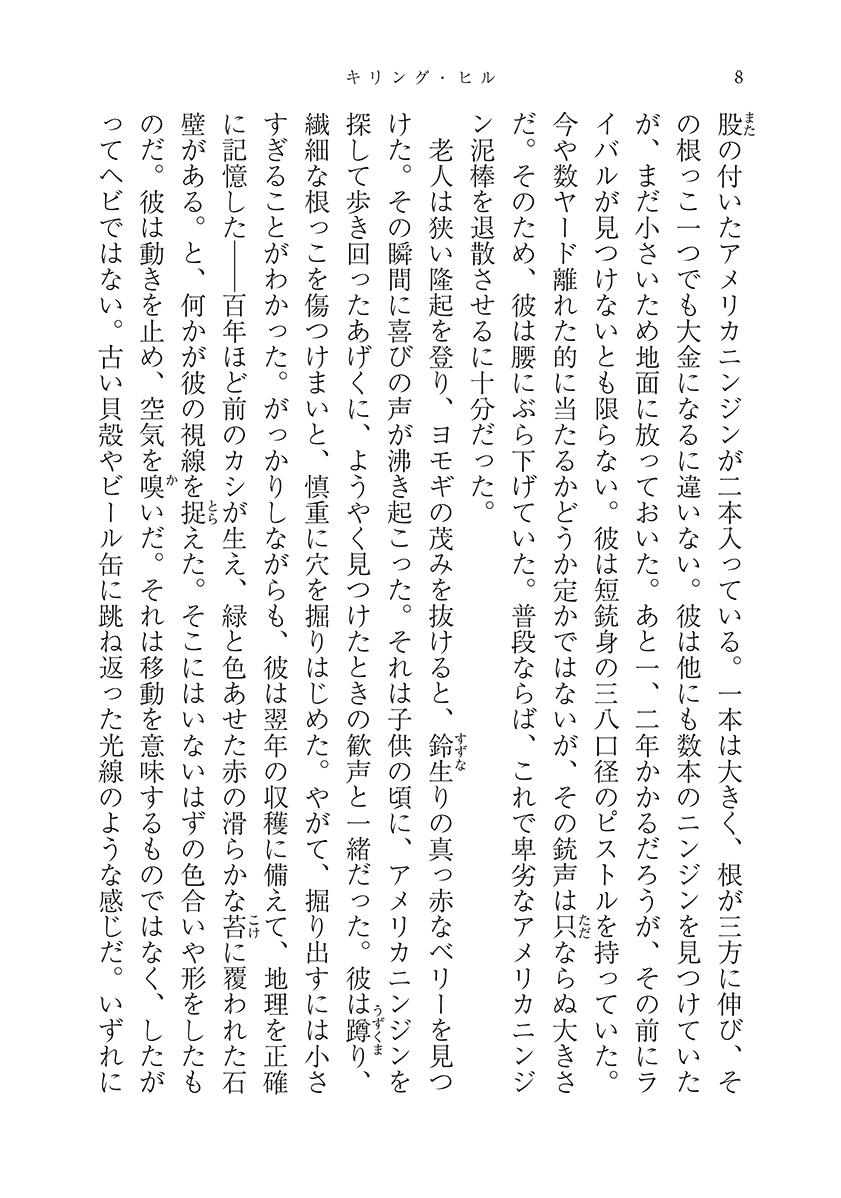 キリング・ヒル
8
股の付いたアメリカニンジンが二本入っている。一本は大きく、根が三方に伸び、そ
の根っこ一つでも大金になるに違いない。彼は他にも数本のニンジンを見つけていた
が、まだ小さいため地面に放っておいた。あと一、二年かかるだろうが、その前にラ
イバルが見つけないとも限らない。彼は短銃身の三八口径のピストルを持っていた。
今や数ヤード離れた的に当たるかどうか定かではないが、その銃声は只ならぬ大きさ
だ。そのため、彼は腰にぶら下げていた。普段ならば、これで卑劣なアメリカニンジ
ン泥棒を退散させるに十分だった。
老人は狭い隆起を登り、ヨモギの茂みを抜けると、鈴生りの真っ赤なベリーを見つ
けた。その瞬間に喜びの声が沸き起こった。それは子供の頃に、アメリカニンジンを
探して歩き回ったあげくに、ようやく見つけたときの歓声と一緒だった。彼は蹲り、
繊細な根っこを傷つけまいと、慎重に穴を掘りはじめた。やがて、掘り出すには小さ
すぎることがわかった。がっかりしながらも、彼は翌年の収穫に備えて、地理を正確
に記憶した――百年ほど前のカシが生え、緑と色あせた赤の滑らかな苔に覆われた石
壁がある。と、何かが彼の視線を捉えた。そこにはいないはずの色合いや形をしたも
のだ。彼は動きを止め、空気を嗅いだ。それは移動を意味するものではなく、したが
ってヘビではない。古い貝殻やビール缶に跳ね返った光線のような感じだ。いずれに